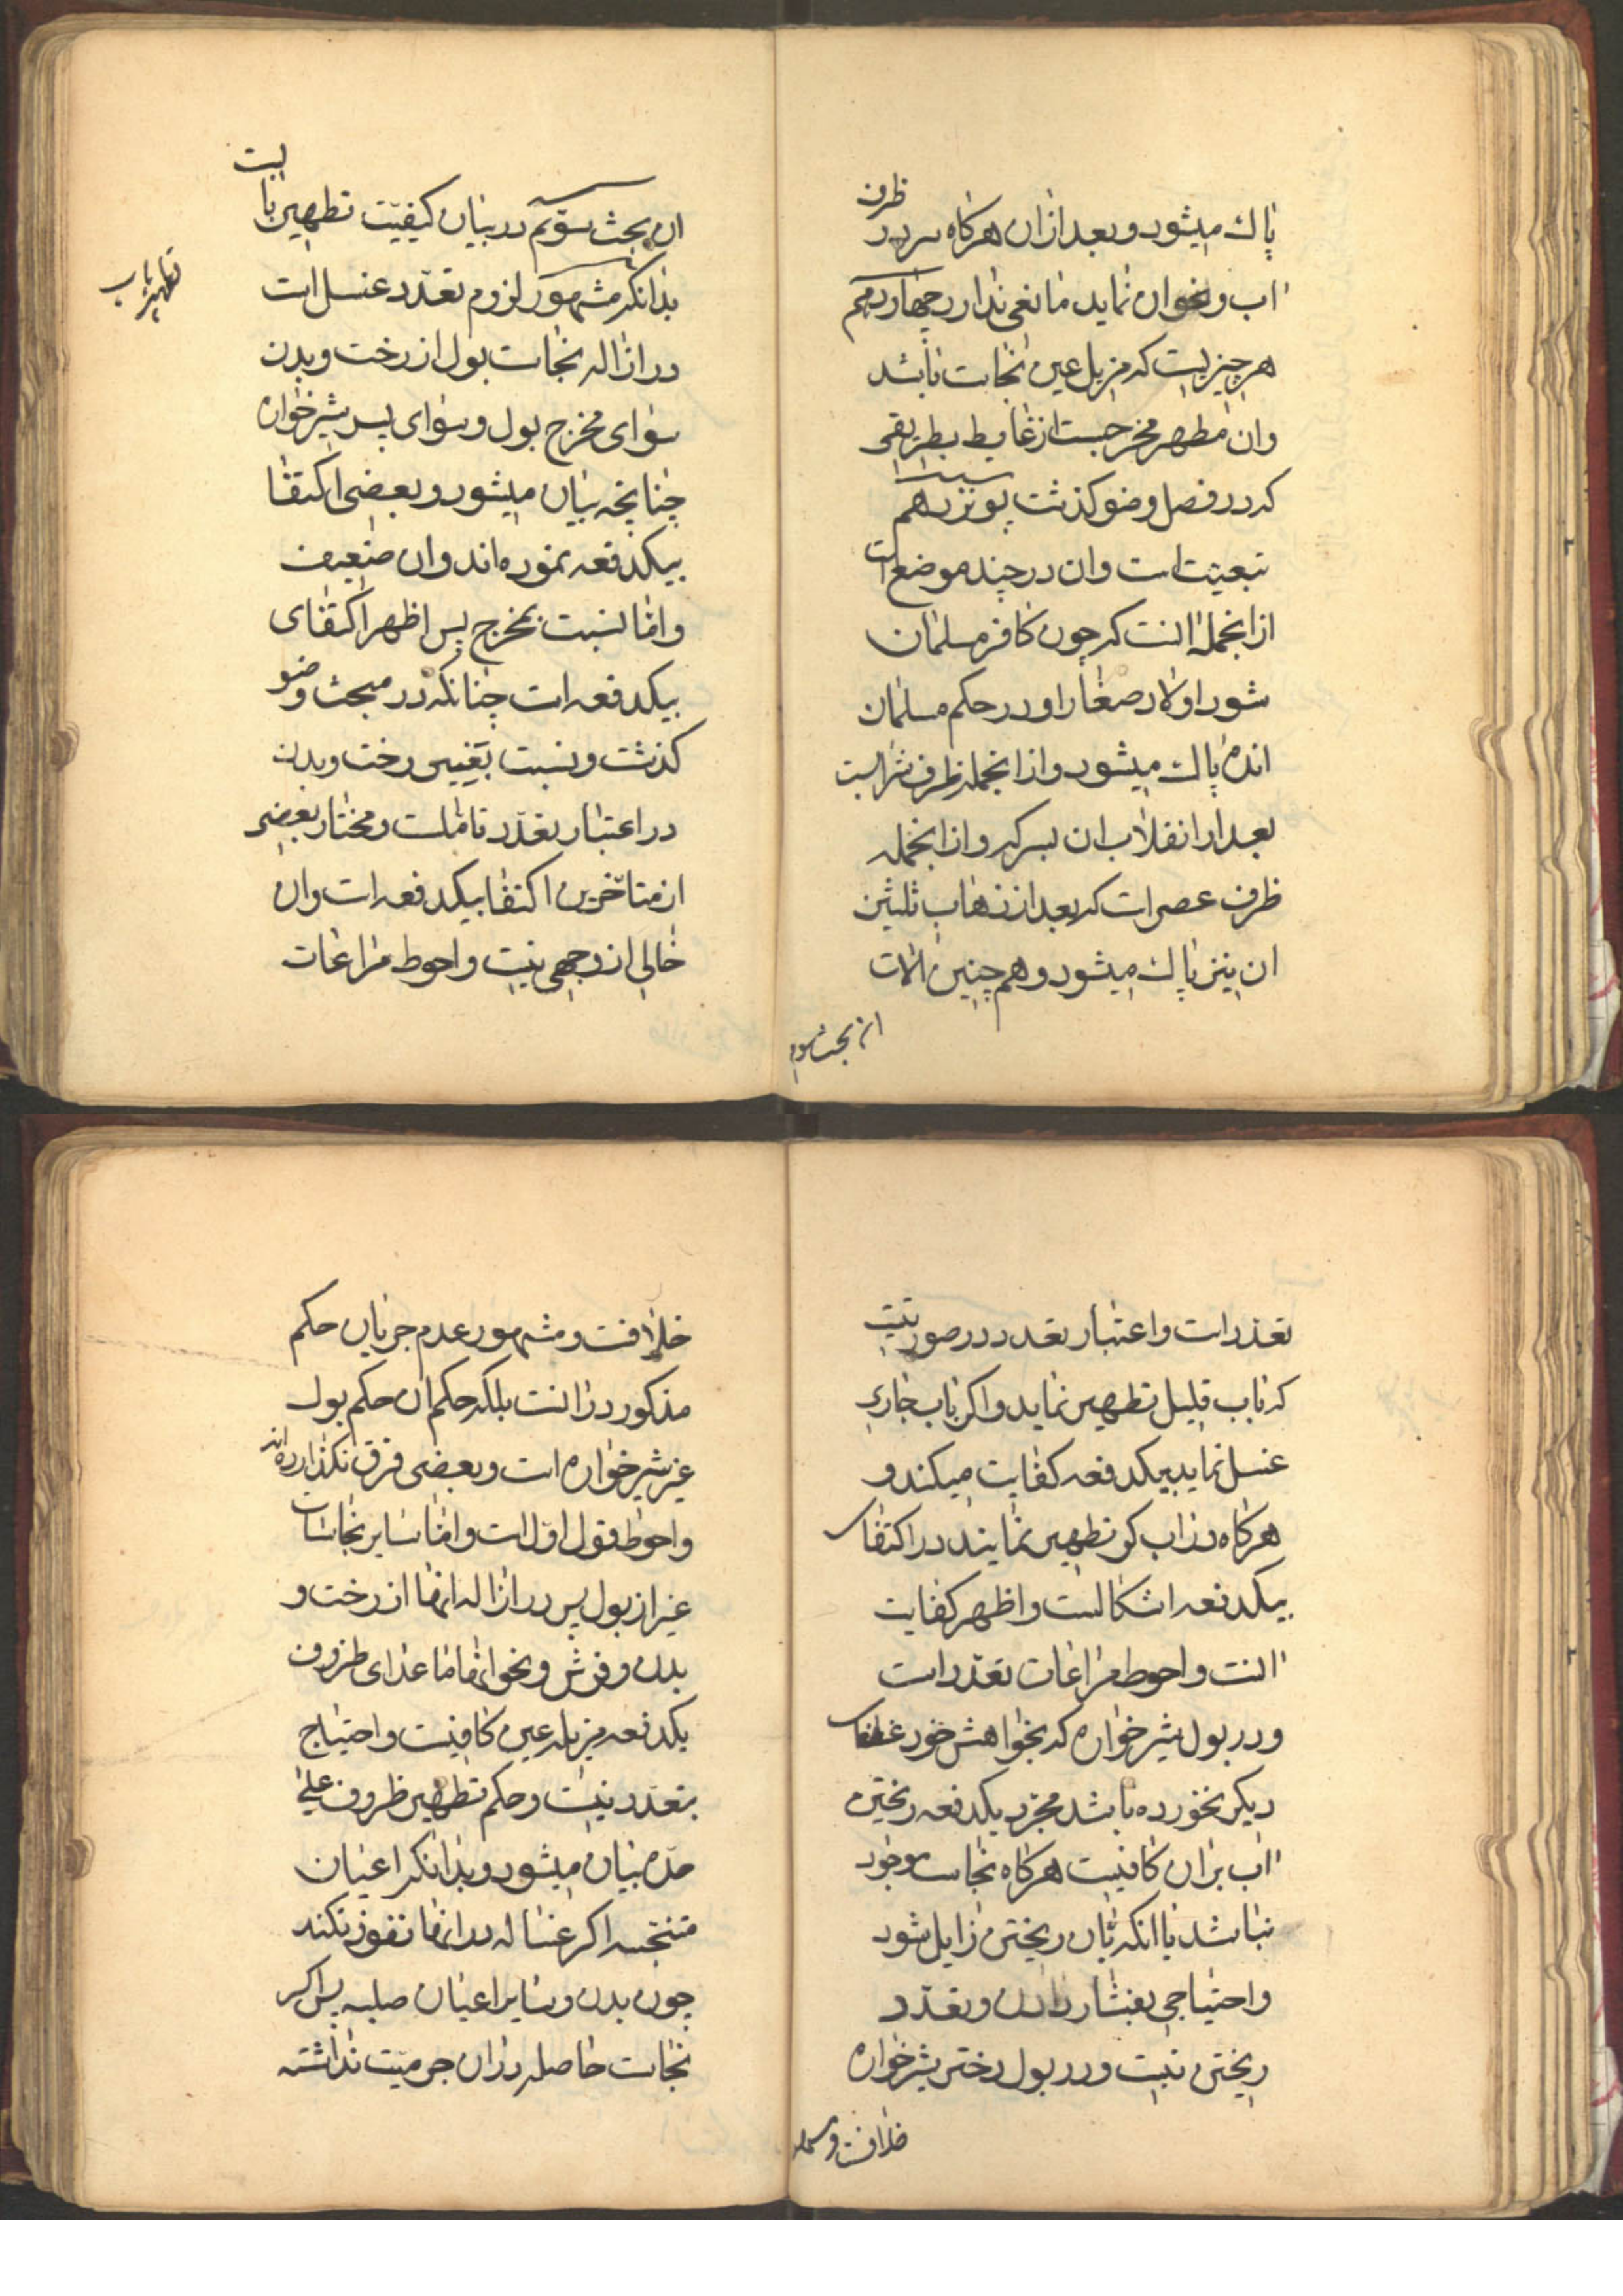 پاك میشود و بعد از ان هرکاه سر در ظرف
اب و نحو ان نماید مانعی ندارد چهاردهم
هر چیزیست که مزیل عین نجاست باشد
وان مطهر مخرجست از غایط بطریقی
که در فصل وضو کذشت پونزدهم
تبعیت است وان در چند موضع است
از انجمله انست که چون کافر مسلمان
شود اولاد صغار او در حکم مسلمان
اند پاك میشود و از انجمله ظرف شرابست
بعد از انقلاب ان بسرکه و از انجمله
ظرف عصیر است که بعد از ذهاب ثلثین
ان نیز پاك میشود و هم چنین الات
ان بحث سوم
ان بحث سوّیم در بیان کیفیّت تطهیر بابست
تطهیر باب
بدانکه مشهور لزوم تعدّد غسل است
در ازاله نجاست بول از رخت و بدن
سوای مخرج بول و سوای پسر شیرخواره
چنانچه بیان میشود و بعضی اکتفا
بیکدفعه نموده اند وان ضعیف
و امّا نسبت بمخرج پس اظهر اکتفای
بیکدفعه است چنانکه در مبحث وضو
کذشت و نسبت بغیر رخت و بدن
در اعتبار تعدّد تاملست و مختار بعضی
از متاخّرین اکتفا بیکدفعه است وان
خالی از وجهی نیست و احوط مراعات
تعدد است و اعتبار تعدد در صورتیست
که باب قلیل تطهیر نماید و اکر باب جاری
غسل نماید بیکدفعه کفایت میکند و
هرکاه در اب کر تطهیر نمایند در اکتفای
بیکدفعه اشکالست و اظهر کفایت
انست و احوط مراعات تعدّد است
و در بول شیرخواره که بخواهش خود غذای
دیکر نخورده باشد مجرّد یکدفعه ریختن
اب بران کافیست هرکاه نجاست موجود
نباشد یا انکه بان ریختن زایل شود
و احتیاجی بفشار دادن و تعدّد
ریختن نیست و در بول دختر شیرخواره
خلافست و مشهور
خلافست و مشهور عدم جریان حکم
مذکور در انست بلکه حکم ان حکم بول
غیر شیرخواره است و بعضی فرق نکذارده اند
و احوط قول اوّل است و امّا سایر نجاسات
غیر از بول پس در ازاله انها از رخت و
بدن و فرش و نحو انها ما عدای ظروف
یکدفعه مزیله عین کافیست و احتیاج
بتعدّد نیست و حکم تطهیر ظروف علی
حدّه بیان میشود و بدانکه اعیان
متنجّسه اکر غساله در انها نفوذ نکند
چون بدن و سایر اعیان صلبه پس اکر
نجاست حاصله در ان جرمیّت نداشته